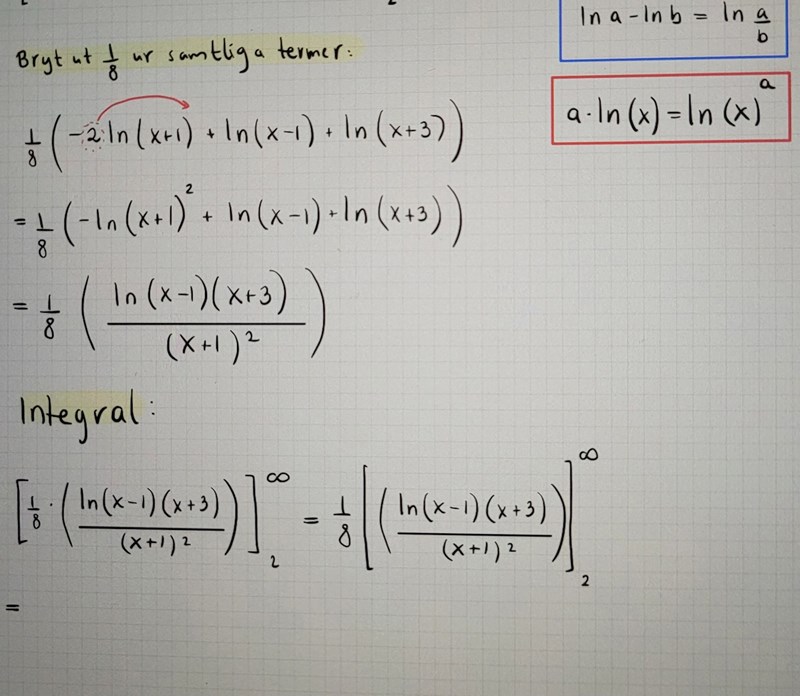 ln a - ln b = ln a/b
Bryt ut 1/8 ur samtliga termer:
a·ln(x) = ln(x)^a
1/8 (-2·ln(x+1) + ln(x-1) + ln(x+3))
= 1/8 (-ln(x+1)^2 + ln(x-1) + ln(x+3))
= 1/8 ( ln(x-1)(x+3) / (x+1)^2 )
Integral:
[1/8 · ( ln(x-1)(x+3) / (x+1)^2 )]_2^∞ = 1/8 [( ln(x-1)(x+3) / (x+1)^2 )]_2^∞
=